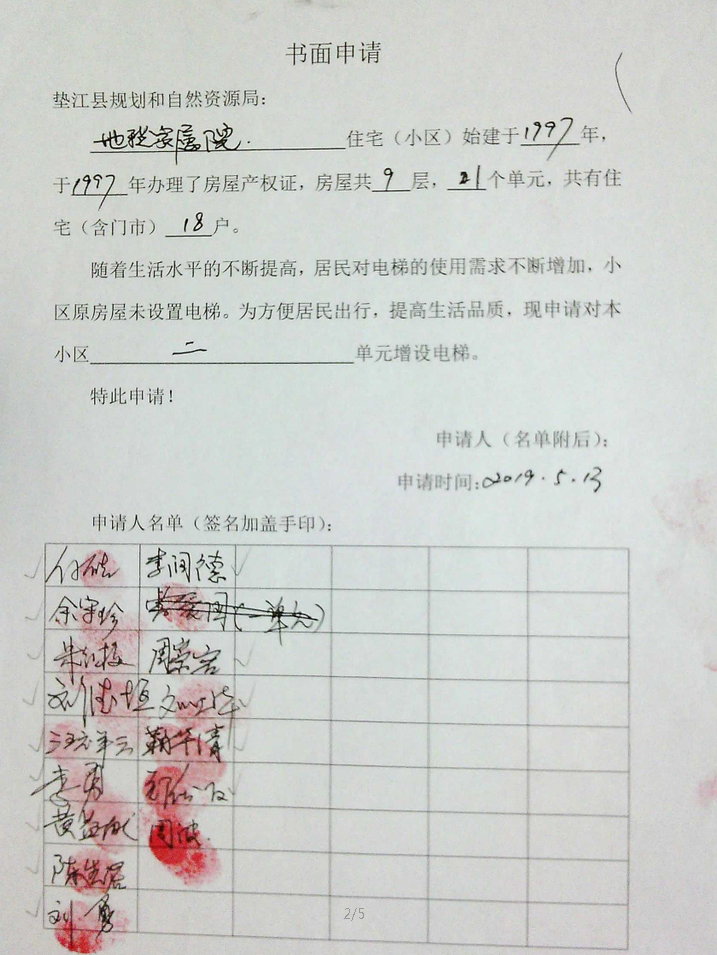 书面申请
垫江县规划和自然资源局：
地税家属院. 住宅（小区）始建于1997年，
于1997年办理了房屋产权证，房屋共9层，21个单元，共有住
宅（含门市）18户。
随着生活水平的不断提高，居民对电梯的使用需求不断增加，小
区原房屋未设置电梯。为方便居民出行，提高生活品质，现申请对本
小区二单元增设电梯。
特此申请！
申请人（名单附后）：
申请时间：2019.5.13
申请人名单（签名加盖手印）：
李闰德
余守珍 (一单元)
周宗容
刘德恒
李勇
周波.
刘勇
2/5